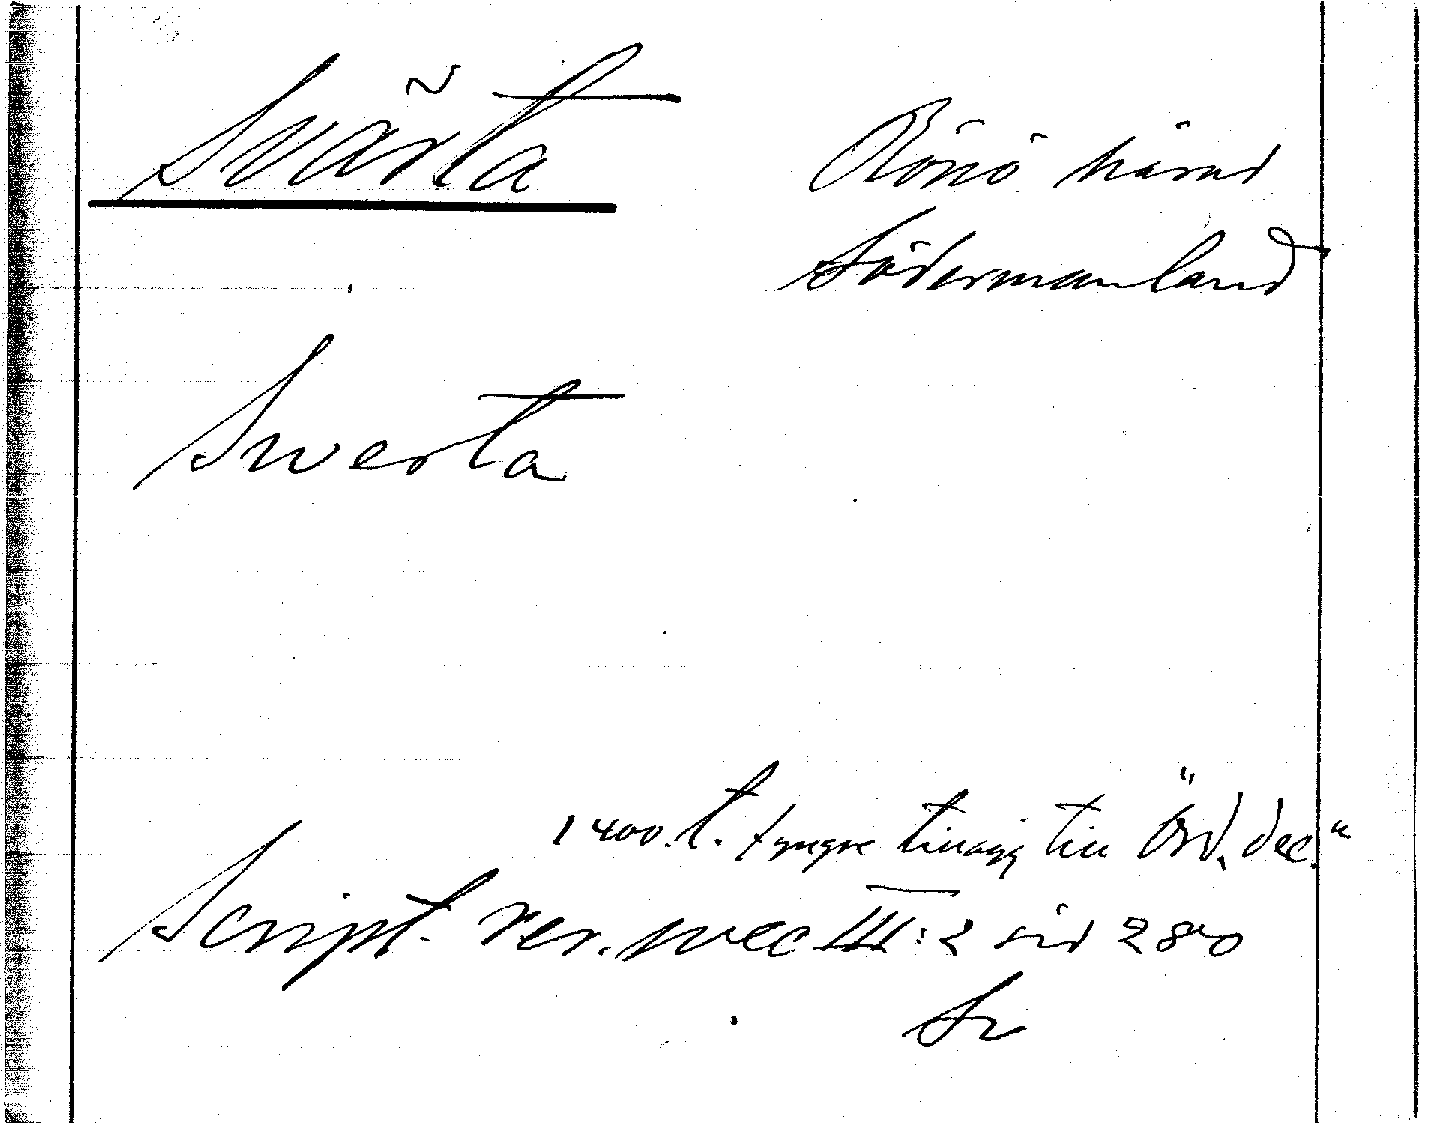 Svärta
Rönö härad
Södermanland
Swerta
1400 t. tyngre tillägg till "Örd. dec."
Script. rer. svec III:2 sid 280
Sr